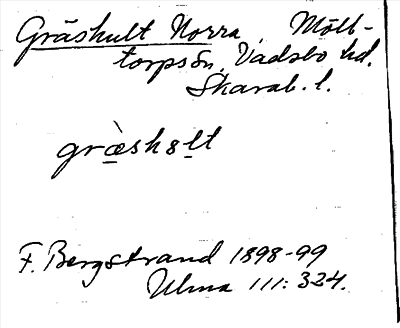 Gräshult Norra, Mölt-
torps sn, Vadsbo hd.
Skarab. l.
græ̀shꞷlt
F. Bergstrand 1898-99
Ulma 111: 324.